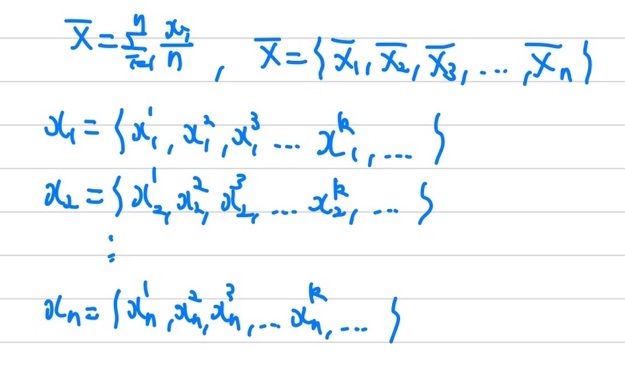 X̄ = Σ_{i=1}^{n} x_i/n , X̄ = { X̄₁, X̄₂, X̄₃, ... , X̄ₙ }
x₁ = { x₁¹, x₁², x₁³ ... x₁ᵏ, ... }
x₂ = { x₂¹, x₂², x₂³, ... x₂ᵏ, ... }
⋮
xₙ = { xₙ¹, xₙ², xₙ³, ... xₙᵏ, ... }